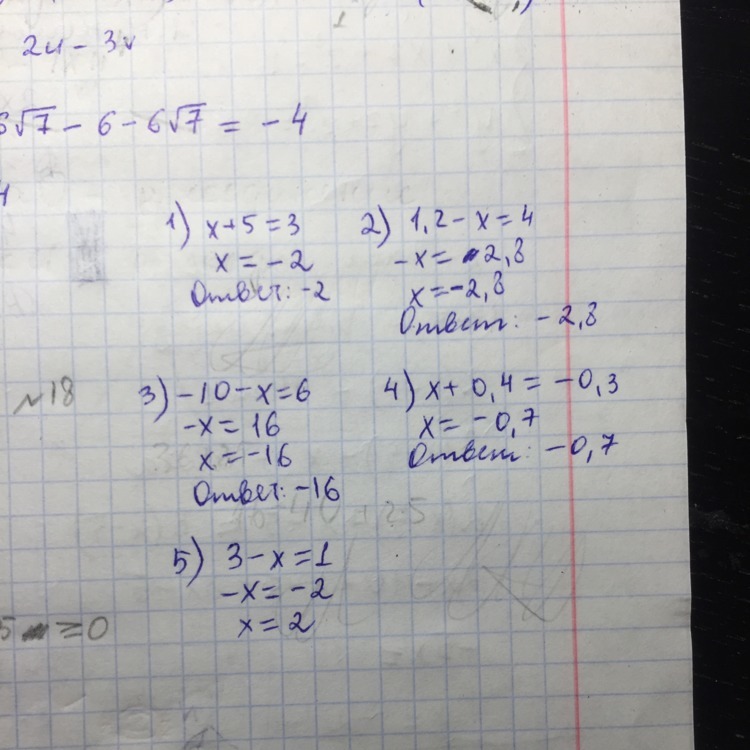 6√7 - 6 - 6√7 = -4
1) x+5=3
x=-2
Ответ: -2
2) 1,2-x=4
-x=2,8
x=-2,8
Ответ: -2,8
№18
3) -10-x=6
-x=16
x=-16
Ответ: -16
4) x+0,4=-0,3
x=-0,7
Ответ: -0,7
5) 3-x=1
-x=-2
x=2
5 =0